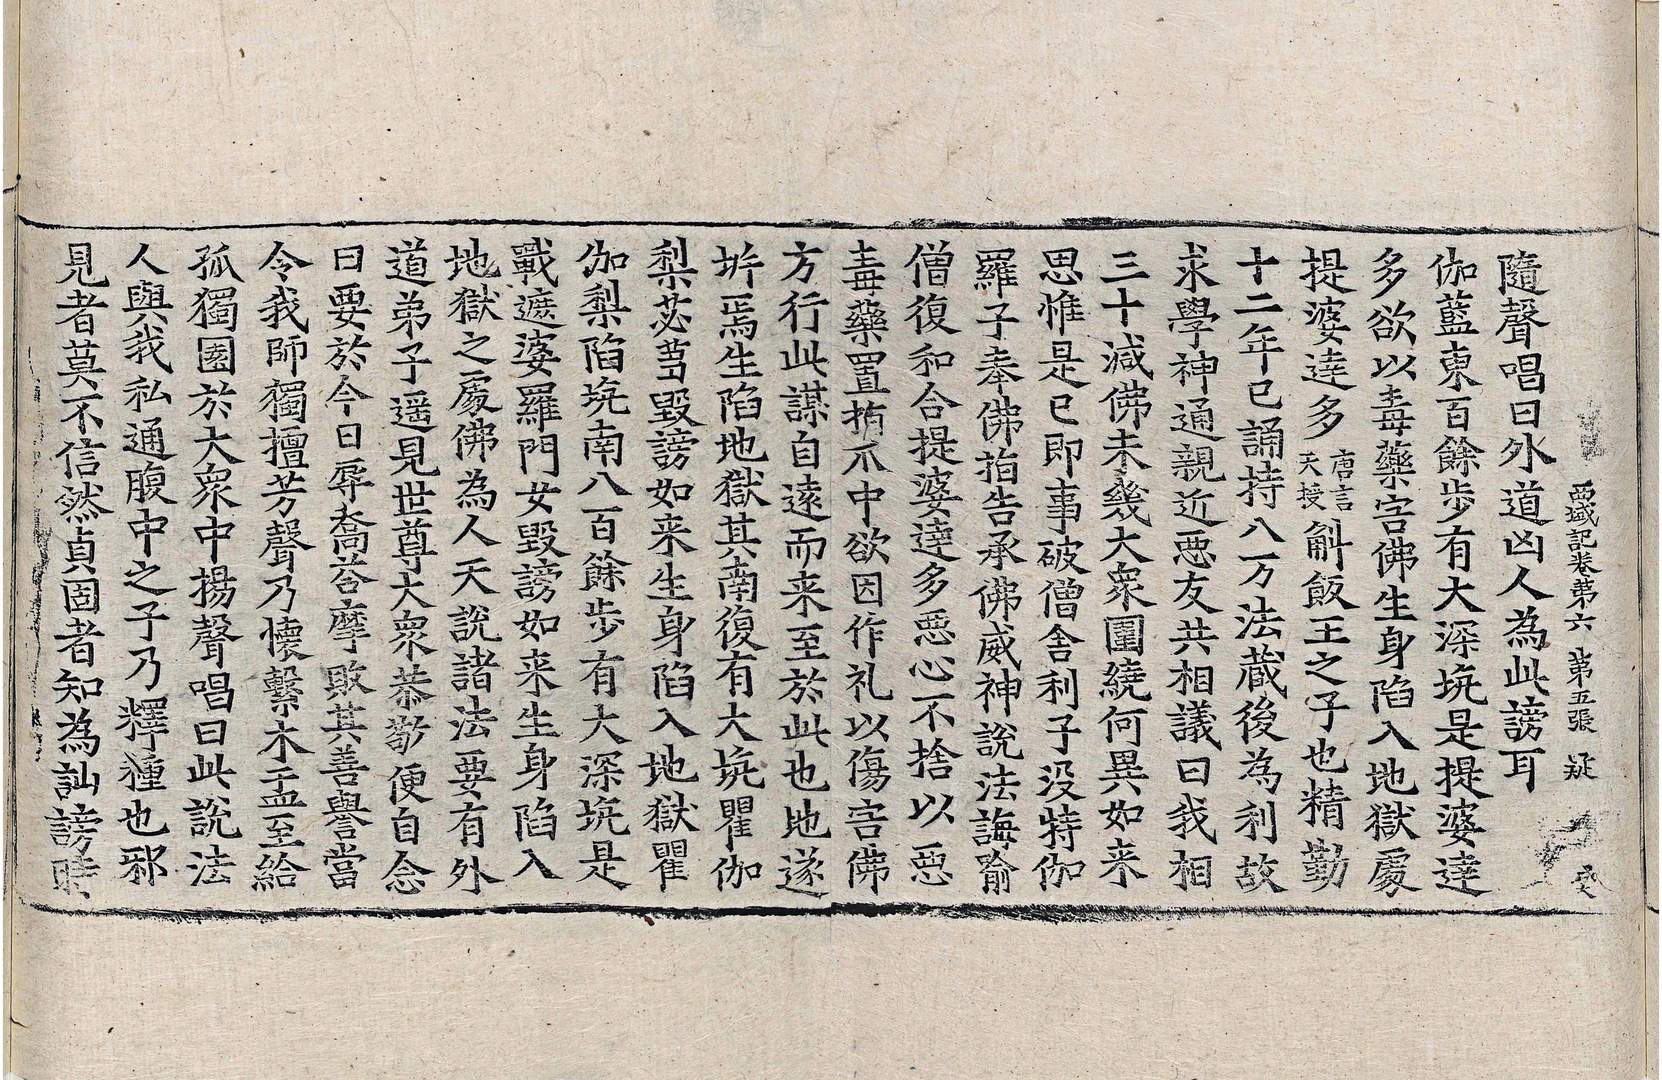 西域記卷第六 第五張 疑
隨聲唱曰外道凶人為此謗耳
伽藍東百餘步有大深坑是提婆達
多欲以毒藥害佛生身陷入地獄處
提婆達多唐言天授斛飯王之子也精勤
十二年已誦持八万法蔵後為利故
求學神通親近惡友共相議曰我相
三十減佛未幾大衆圍繞何異如来
思惟是已即事破僧舍利子没特伽
羅子奉佛指告承佛威神說法誨喻
僧復和合提婆達多惡心不捨以惡
毒藥置指爪中欲因作礼以傷害佛
方行此謀自遠而来至於此也地遂
坼焉生陷地獄其南復有大坑瞿伽
梨苾芻毀謗如来生身陷入地獄瞿
伽梨陷坑南八百餘步有大深坑是
戰遮婆羅門女毀謗如来生身陷入
地獄之處佛為人天說諸法要有外
道弟子遥見世尊大衆恭敬便自念
曰要於今日辱喬荅摩敗其善譽當
令我師獨擅芳聲乃懷繫木盂至給
孤獨園於大衆中揚聲唱曰此說法
人與我私通腹中之子乃釋種也邪
見者莫不信然貞固者知為訕謗時